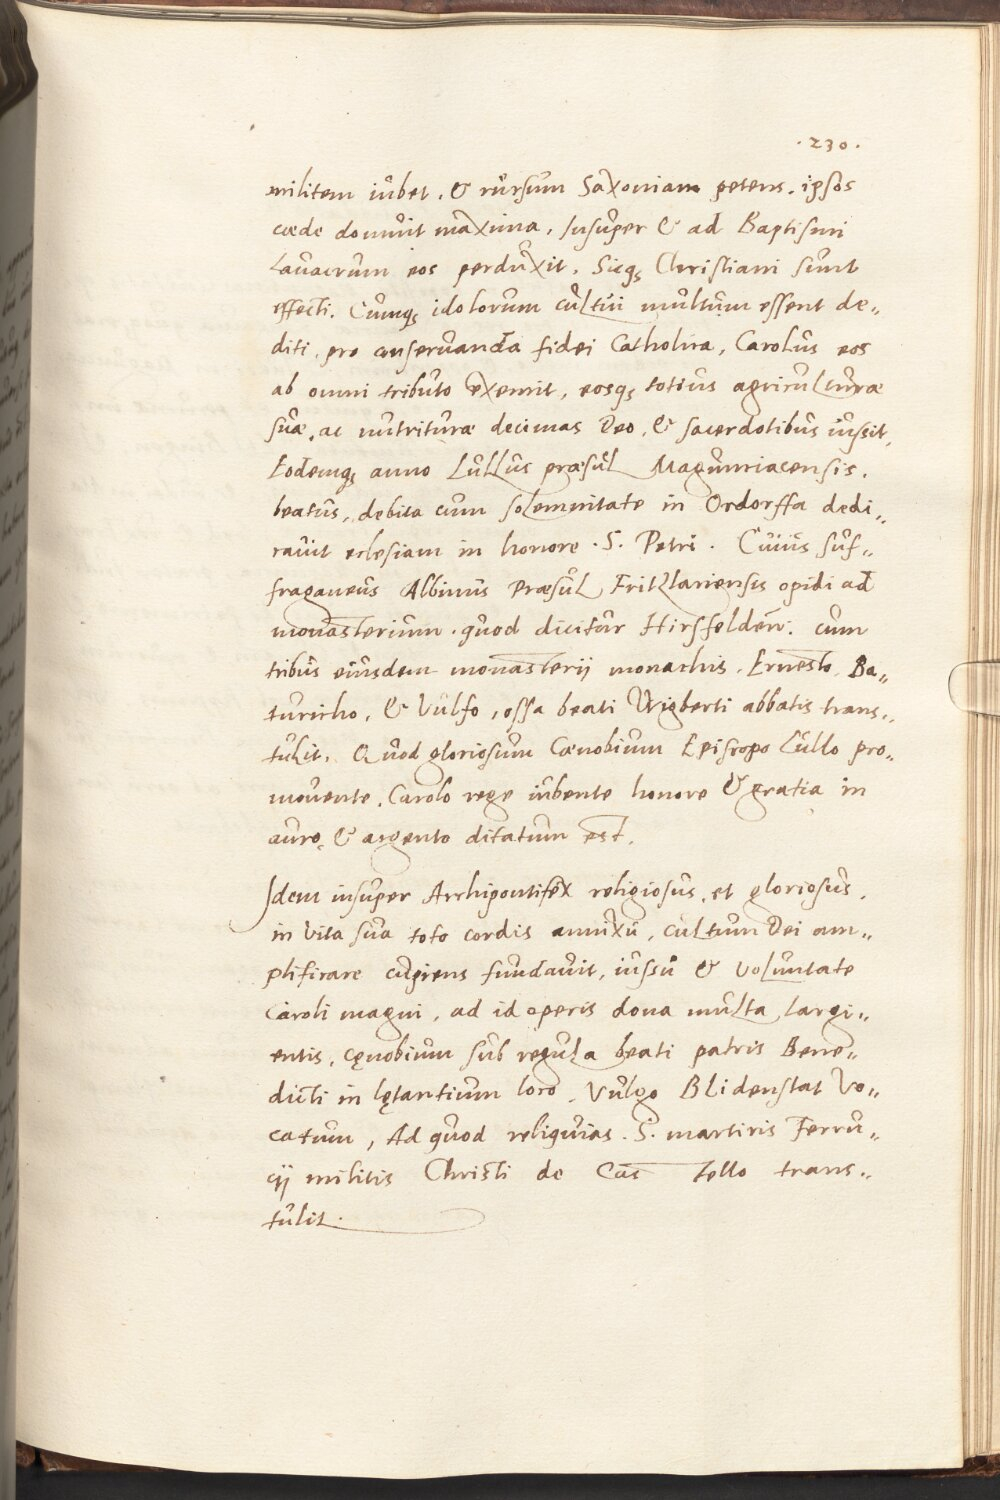 . 230 .
militem iubet. & rursum Saxoniam petens. ipsos
cæde domuit maxima, Insuper & ad Baptismi
Lauacrum eos perduxit. Sicq; Christiani sunt
effecti. Cumq; idolorum cultui multum essent de„
diti, pro conseruanda fidei Catholica, Carolus eos
ab omni tributo exemit, eosq; totius agriculturæ
suæ, ac nutrituræ decimas Deo, & sacerdotibus iussit,
Eodemq; anno Lullus præsul Magunciacensis.
beatus, debita cum solemnitate in Ordorffa dedi„
cauit eclesiam in honore . S. Petri . Cuius suf„
fraganeus Albinus Præsul Fritzlariensis opidi ad
monasterium . quod dicitur Hirsfelden. cum
tribus eiusdem monasterij monachis. Ernesto, Ba„
turicho, & Vulfo, ossa beati Wigberti abbatis trans„
tulit. Quod gloriosum Cœnobium Episcopo Lullo pro„
mouente, Carolo rege iubente honore & gratia in
auro, & argento ditatum est.
Idem insuper Archipontifex religiosus, et gloriosus,
in vita sua toto cordis annixu, cultum Dei am„
plificare cupiens fundauit, iussu & voluntate
Caroli magni, ad id operis dona multa largi„
entis, cęnobium sub regula beati patris Bene„
dicti in lętantium loco, Vulgo Blidenstat Vo„
catum, Ad quod reliquias . S. martiris Ferru„
cij militis Christi de Cas tello trans„
tulit.